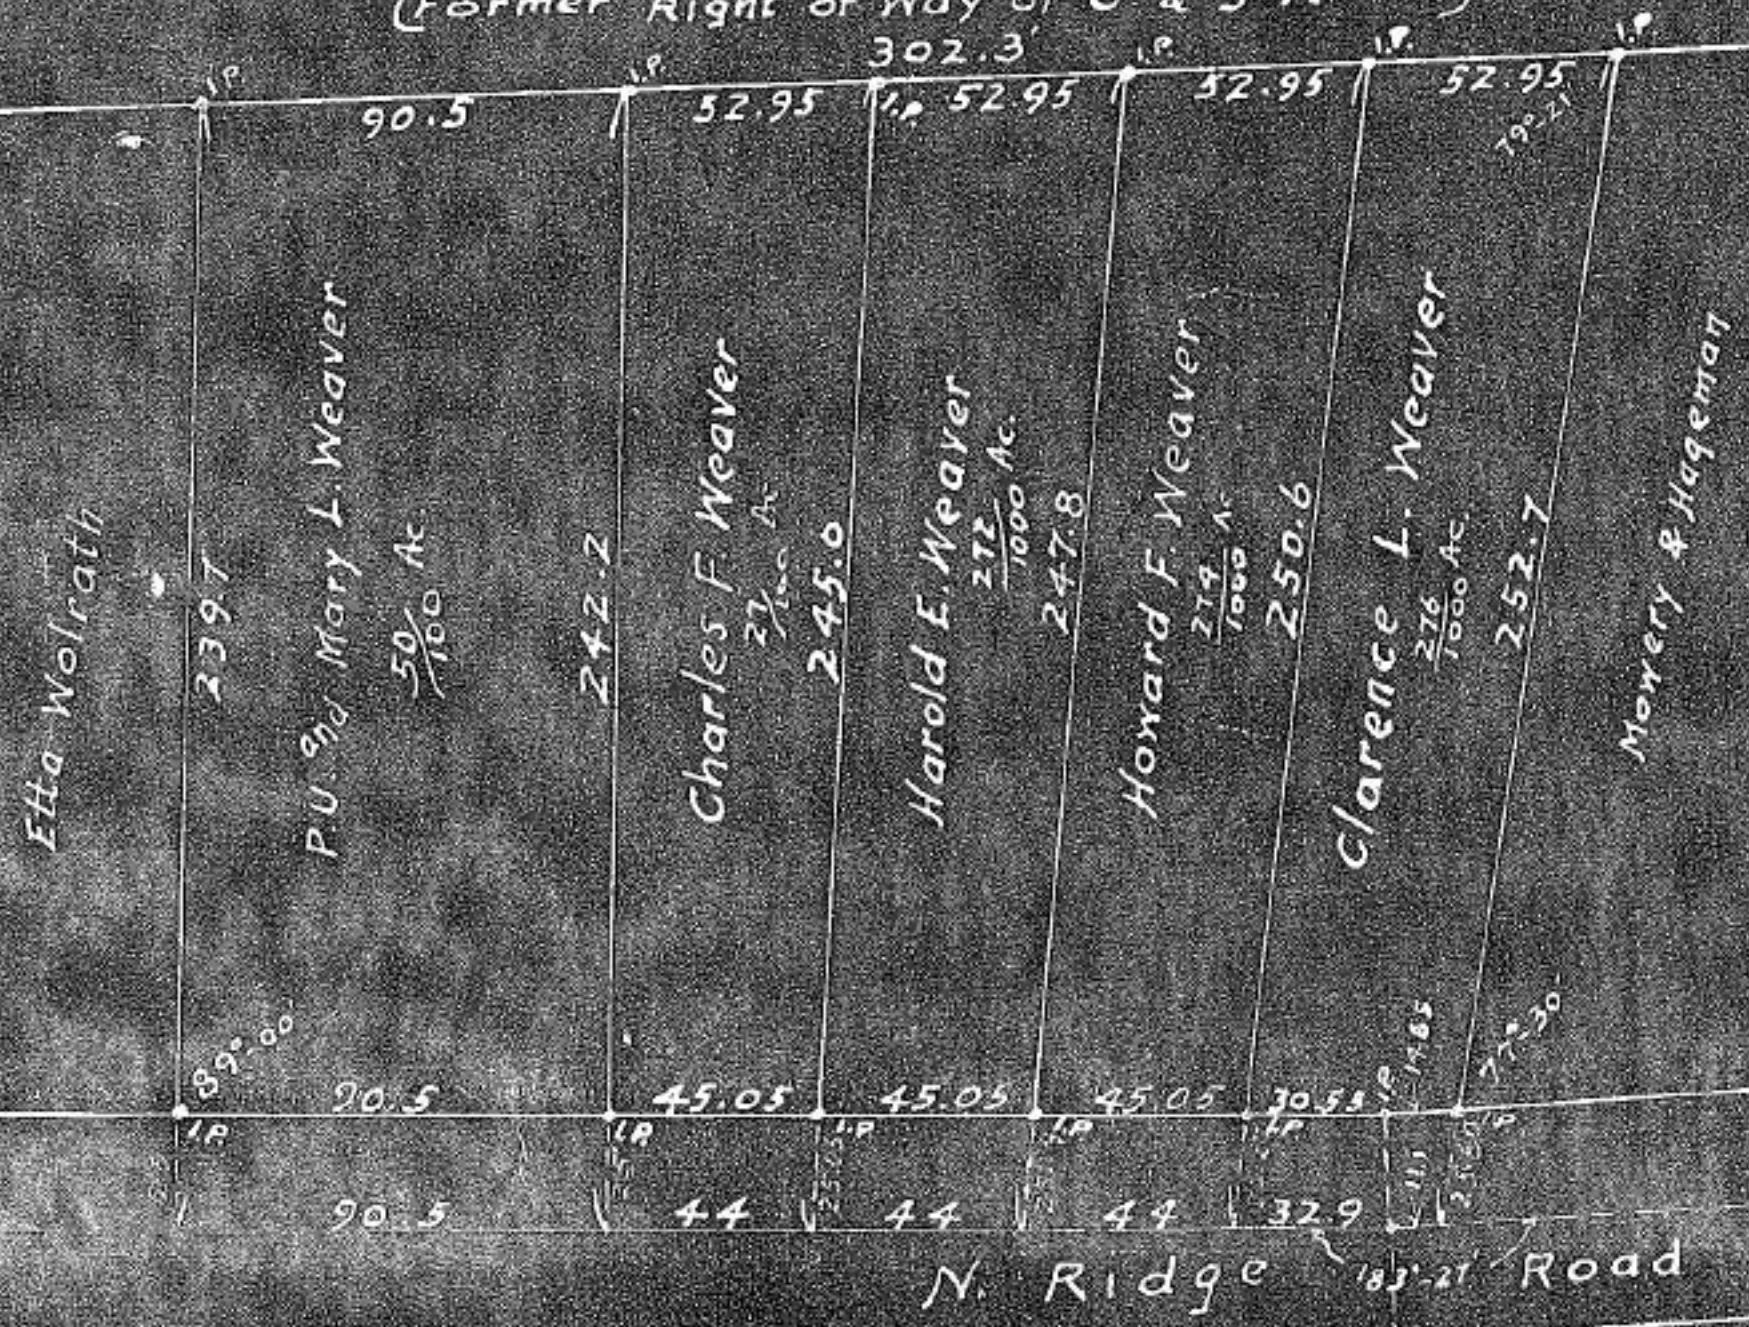 (Former Right of Way of
302.3'
I.P.
I.P.
I.P.
I.P.
I.P.
I.P.
90.5
52.95
52.95
52.95
52.95
79°-21'
Etta Wolrath
239.7
P.U. and Mary L. Weaver
50/100 Ac.
242.2
Charles F. Weaver
27/100 Ac
245.0
Harold E. Weaver
272/1000 Ac.
247.8
Howard F. Weaver
274/1000 Ac
250.6
Clarence L. Weaver
276/1000 Ac.
252.7
Mowery & Hageman
89°-00'
90.5
45.05
45.05
45.05
30.55
I.P.
14.85
77°-30'
I.P.
I.P.
I.P.
I.P.
I.P.
I.P.
90.5
44
44
44
32.9
11.1
N. Ridge Road
183°-27'